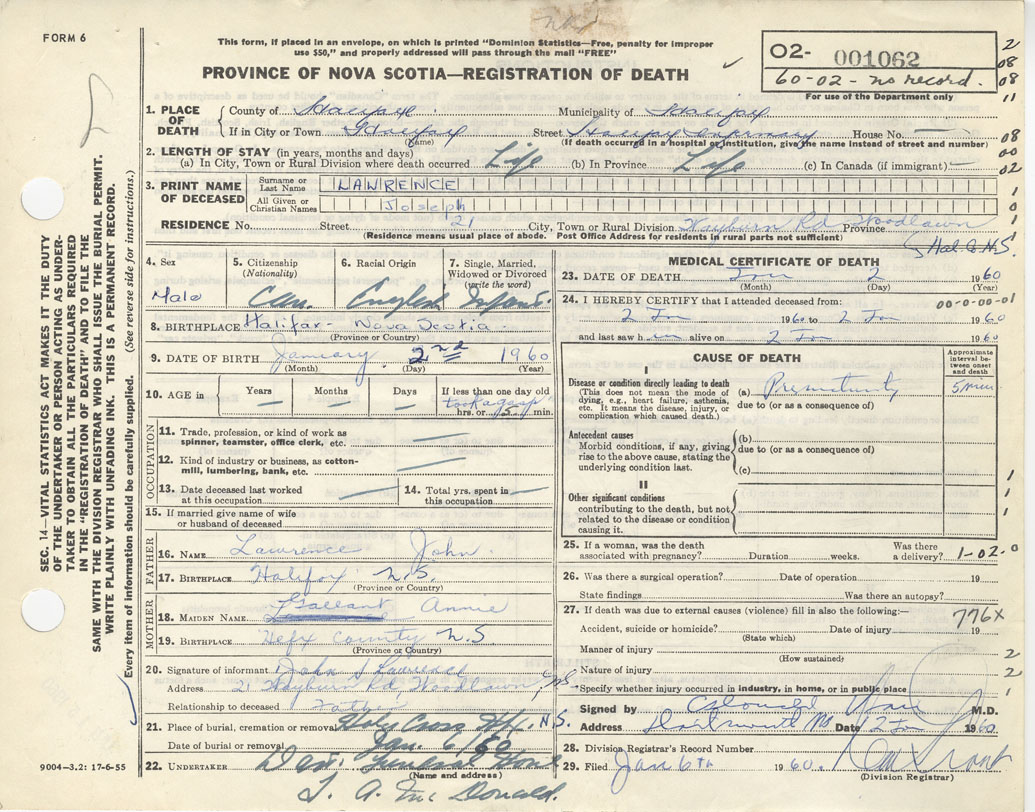 FORM 6
This form, if placed in an envelope, on which is printed "Dominion Statistics—Free, penalty for improper
use $50," and properly addressed will pass through the mail "FREE"
PROVINCE OF NOVA SCOTIA—REGISTRATION OF DEATH
02- 001062
60-02 - no record.
For use of the Department only
2
08
08
11
1. PLACE OF DEATH
County of Halifax Municipality of Halifax
If in City or Town Halifax Street Halifax Infirmary House No.
(Name) (If death occurred in a hospital or institution, give the name instead of street and number)
08
00
02
2. LENGTH OF STAY (in years, months and days)
(a) In City, Town or Rural Division where death occurred Life (b) In Province Life (c) In Canada (if immigrant)
3. PRINT NAME OF DECEASED
Surname or Last Name LAWRENCE
All Given or Christian Names Joseph
1
0
1
RESIDENCE No. Street 21 City, Town or Rural Division Wayburn Rd Woodlawn Province
(Residence means usual place of abode. Post Office Address for residents in rural parts not sufficient)
Hal Co N.S.
4. Sex
Male
5. Citizenship (Nationality)
Can.
6. Racial Origin
English
7. Single, Married, Widowed or Divorced (write the word)
Infant.
8. BIRTHPLACE Halifax - Nova Scotia
(Province or Country)
9. DATE OF BIRTH January 2nd 1960
(Month) (Day) (Year)
10. AGE in
Years
Months
Days
If less than one day old
hrs. or 5 min.
OCCUPATION
11. Trade, profession, or kind of work as spinner, teamster, office clerk, etc.
12. Kind of industry or business, as cotton-mill, lumbering, bank, etc.
13. Date deceased last worked at this occupation
14. Total yrs. spent in this occupation
15. If married give name of wife or husband of deceased
FATHER
16. NAME Lawrence John
17. BIRTHPLACE Halifax N.S.
(Province or Country)
MOTHER
18. MAIDEN NAME Gallant Annie
19. BIRTHPLACE Hfx County N.S
(Province or Country)
20. Signature of informant John S Lawrence
Address 21 Wayburn Rd, Woodlawn, NS
Relationship to deceased Father
21. Place of burial, cremation or removal Holy Cross Hfx. N.S.
Date of burial or removal Jan. 6/60
22. UNDERTAKER Dart Funeral Home
(Name and address)
T. A. McDonald.
9004—3.2: 17-6-55
MEDICAL CERTIFICATE OF DEATH
23. DATE OF DEATH Jan 2 1960
(Month) (Day) (Year)
24. I HEREBY CERTIFY that I attended deceased from: 00-0-00-01
2 Jan 1960 to 2 Jan 1960
and last saw h im alive on 2 Jan 1960
CAUSE OF DEATH
Approximate interval between onset and death
I
Disease or condition directly leading to death
(This does not mean the mode of dying, e.g., heart failure, asthenia, etc. It means the disease, injury, or complication which caused death.)
(a) Prematurity 5 min
due to (or as a consequence of)
Antecedent causes
Morbid conditions, if any, giving rise to the above cause, stating the underlying condition last.
(b)
due to (or as a consequence of)
(c)
II
Other significant conditions
contributing to the death, but not related to the disease or condition causing it.
1
1
1
25. If a woman, was the death associated with pregnancy? Duration weeks. Was there a delivery?
1-02-0
26. Was there a surgical operation? Date of operation 19
State findings Was there an autopsy?
27. If death was due to external causes (violence) fill in also the following:—
776X
Accident, suicide or homicide? Date of injury 19
(State which)
Manner of injury
(How sustained)
Nature of injury
Specify whether injury occurred in industry, in home, or in public place
2
2
1
Signed by M.D.
Address Dartmouth Date 2 Jan 1960
28. Division Registrar's Record Number
29. Filed Jan 6th 1960.
(Division Registrar)
SEC. 14—VITAL STATISTICS ACT MAKES IT THE DUTY
OF THE UNDERTAKER OR PERSON ACTING AS UNDER-
TAKER TO OBTAIN ALL THE PARTICULARS REQUIRED
IN THE "REGISTRATION OF DEATH" AND TO FILE THE
SAME WITH THE DIVISION REGISTRAR WHO SHALL ISSUE THE BURIAL PERMIT.
WRITE PLAINLY WITH UNFADING INK. THIS IS A PERMANENT RECORD.
Every item of information should be carefully supplied. (See reverse side for instructions.)